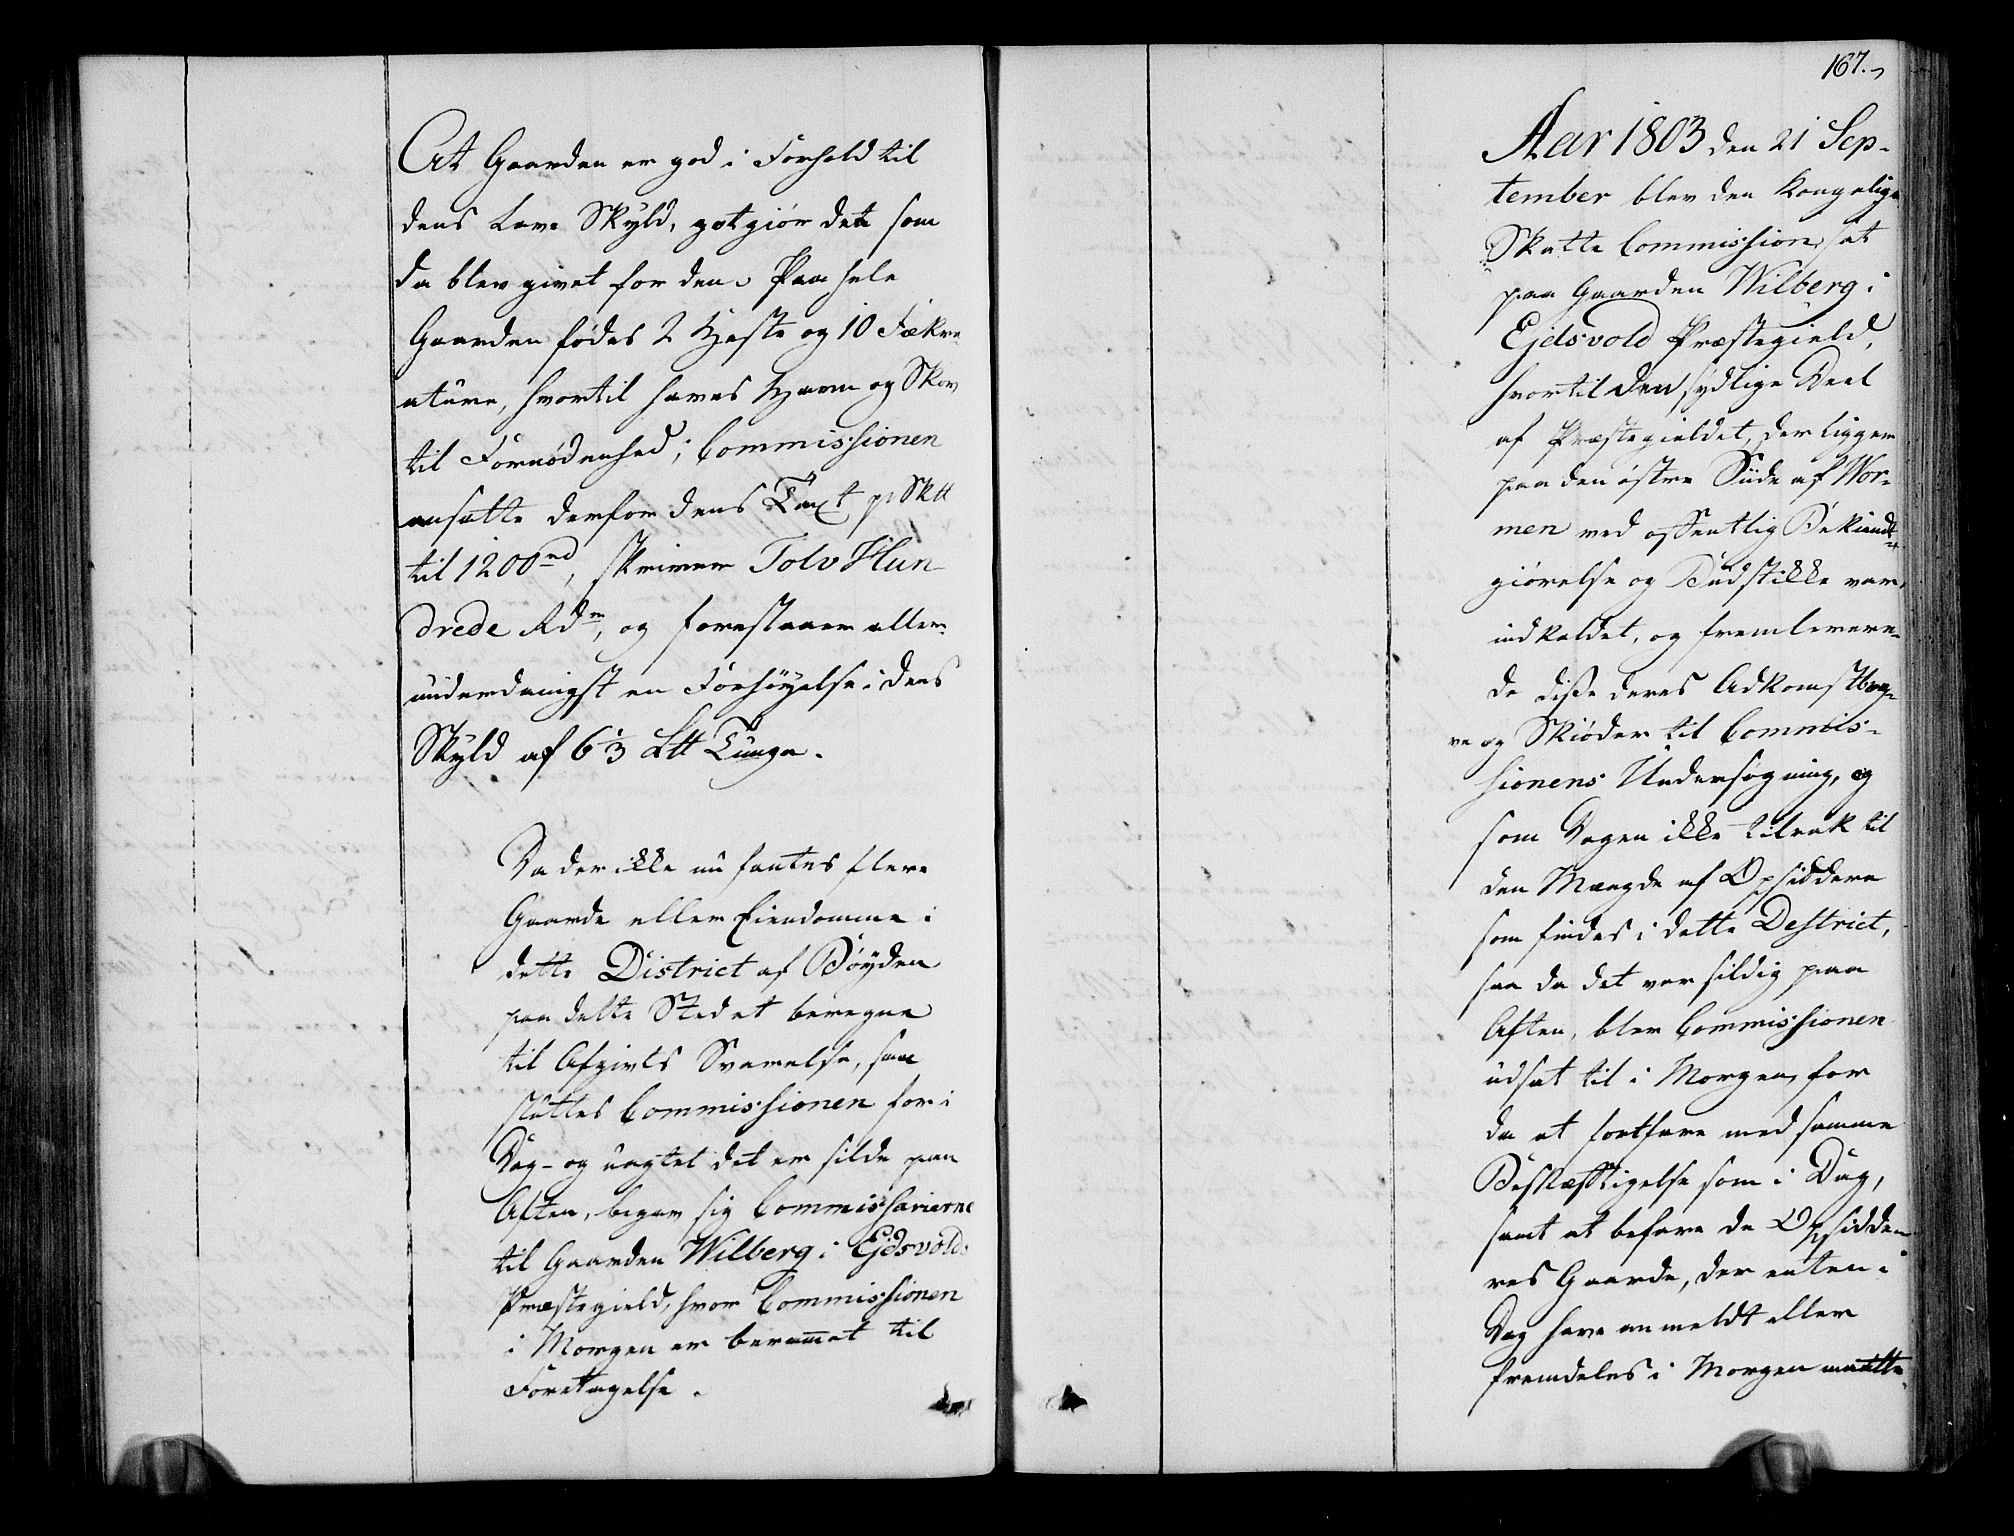 At Gaarden er god i Forhold til
dens Lave Skyld, gotgiør det som
da blev givet for den. Paa hele
Gaarden fødes 2 Heste og 10 Fækre-
ature, hvortil haves Havn og Skov
til Fornødenhed; Commissionen
ansatte derfor dens Taxt pr Sktt
til 1200 rd, skriver Tolv Hun-
drede Rdr, og forestaaer aller-
underdanigst en Forhøyelse i dens
Skyld af 6 1/3 Ltt Tunge.
Da der ikke nu fantes flere
Gaarde eller Eiendomme i
dette District af Bøyden
paa dette Sted at beregne
til Afgivts Svarelse, saa
sluttes Commissionen for i
Dag - og uagtet det er silde paa
Aften, begav sig Commissarierne
til Gaarden Wilberg i Ejdsvolds
Præstegield, hvor Commissionen
i Morgen er berammet til
Foretagelse.
167.
Aar 1803 den 21 Sep-
tember blev den Kongelige
Skatte Commission sat
paa Gaarden Wilberg i
Ejdsvold Præstegield,
hvortil den sydlige Deel
af Præstegieldet, der ligger
paa den østre Siide af Wor-
men ved offentlig Bekiendt-
giørelse og Budstikke var
indkaldet, og fremlevere-
de disse deres Adkomstbre-
ve og Skiøder til Commis-
sionens Undersøgning, og
som Dagen ikke tilrak til
den Mængde af Opsiddere
som findes i dette Destrict,
saa da det var sildig paa
Aften, blev Commissionen
udsat til i Morgen, for
da at fortfare med samme
Beskæftigelse som i Dag,
samt at befare de Opsidde-
res Gaarde, der enten i
Dag have anmeldt eller
fremdeles i Morgen maatte